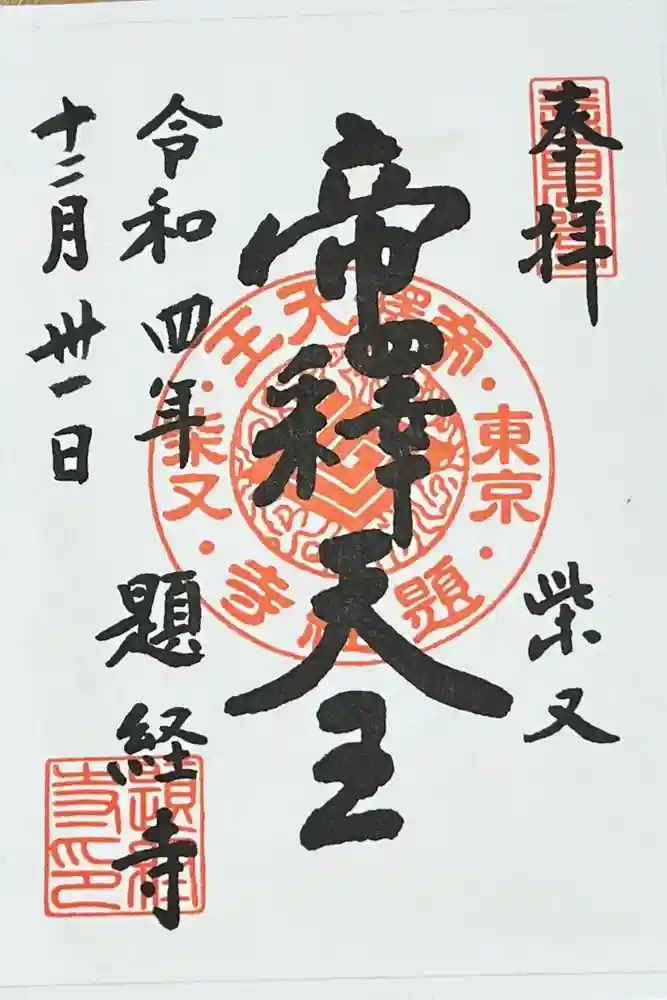 奉拝
柴又
帝釋天王
令和四年
十二月卅一日
題経寺
東京
帝釋天王
柴又
題経寺
題経寺印